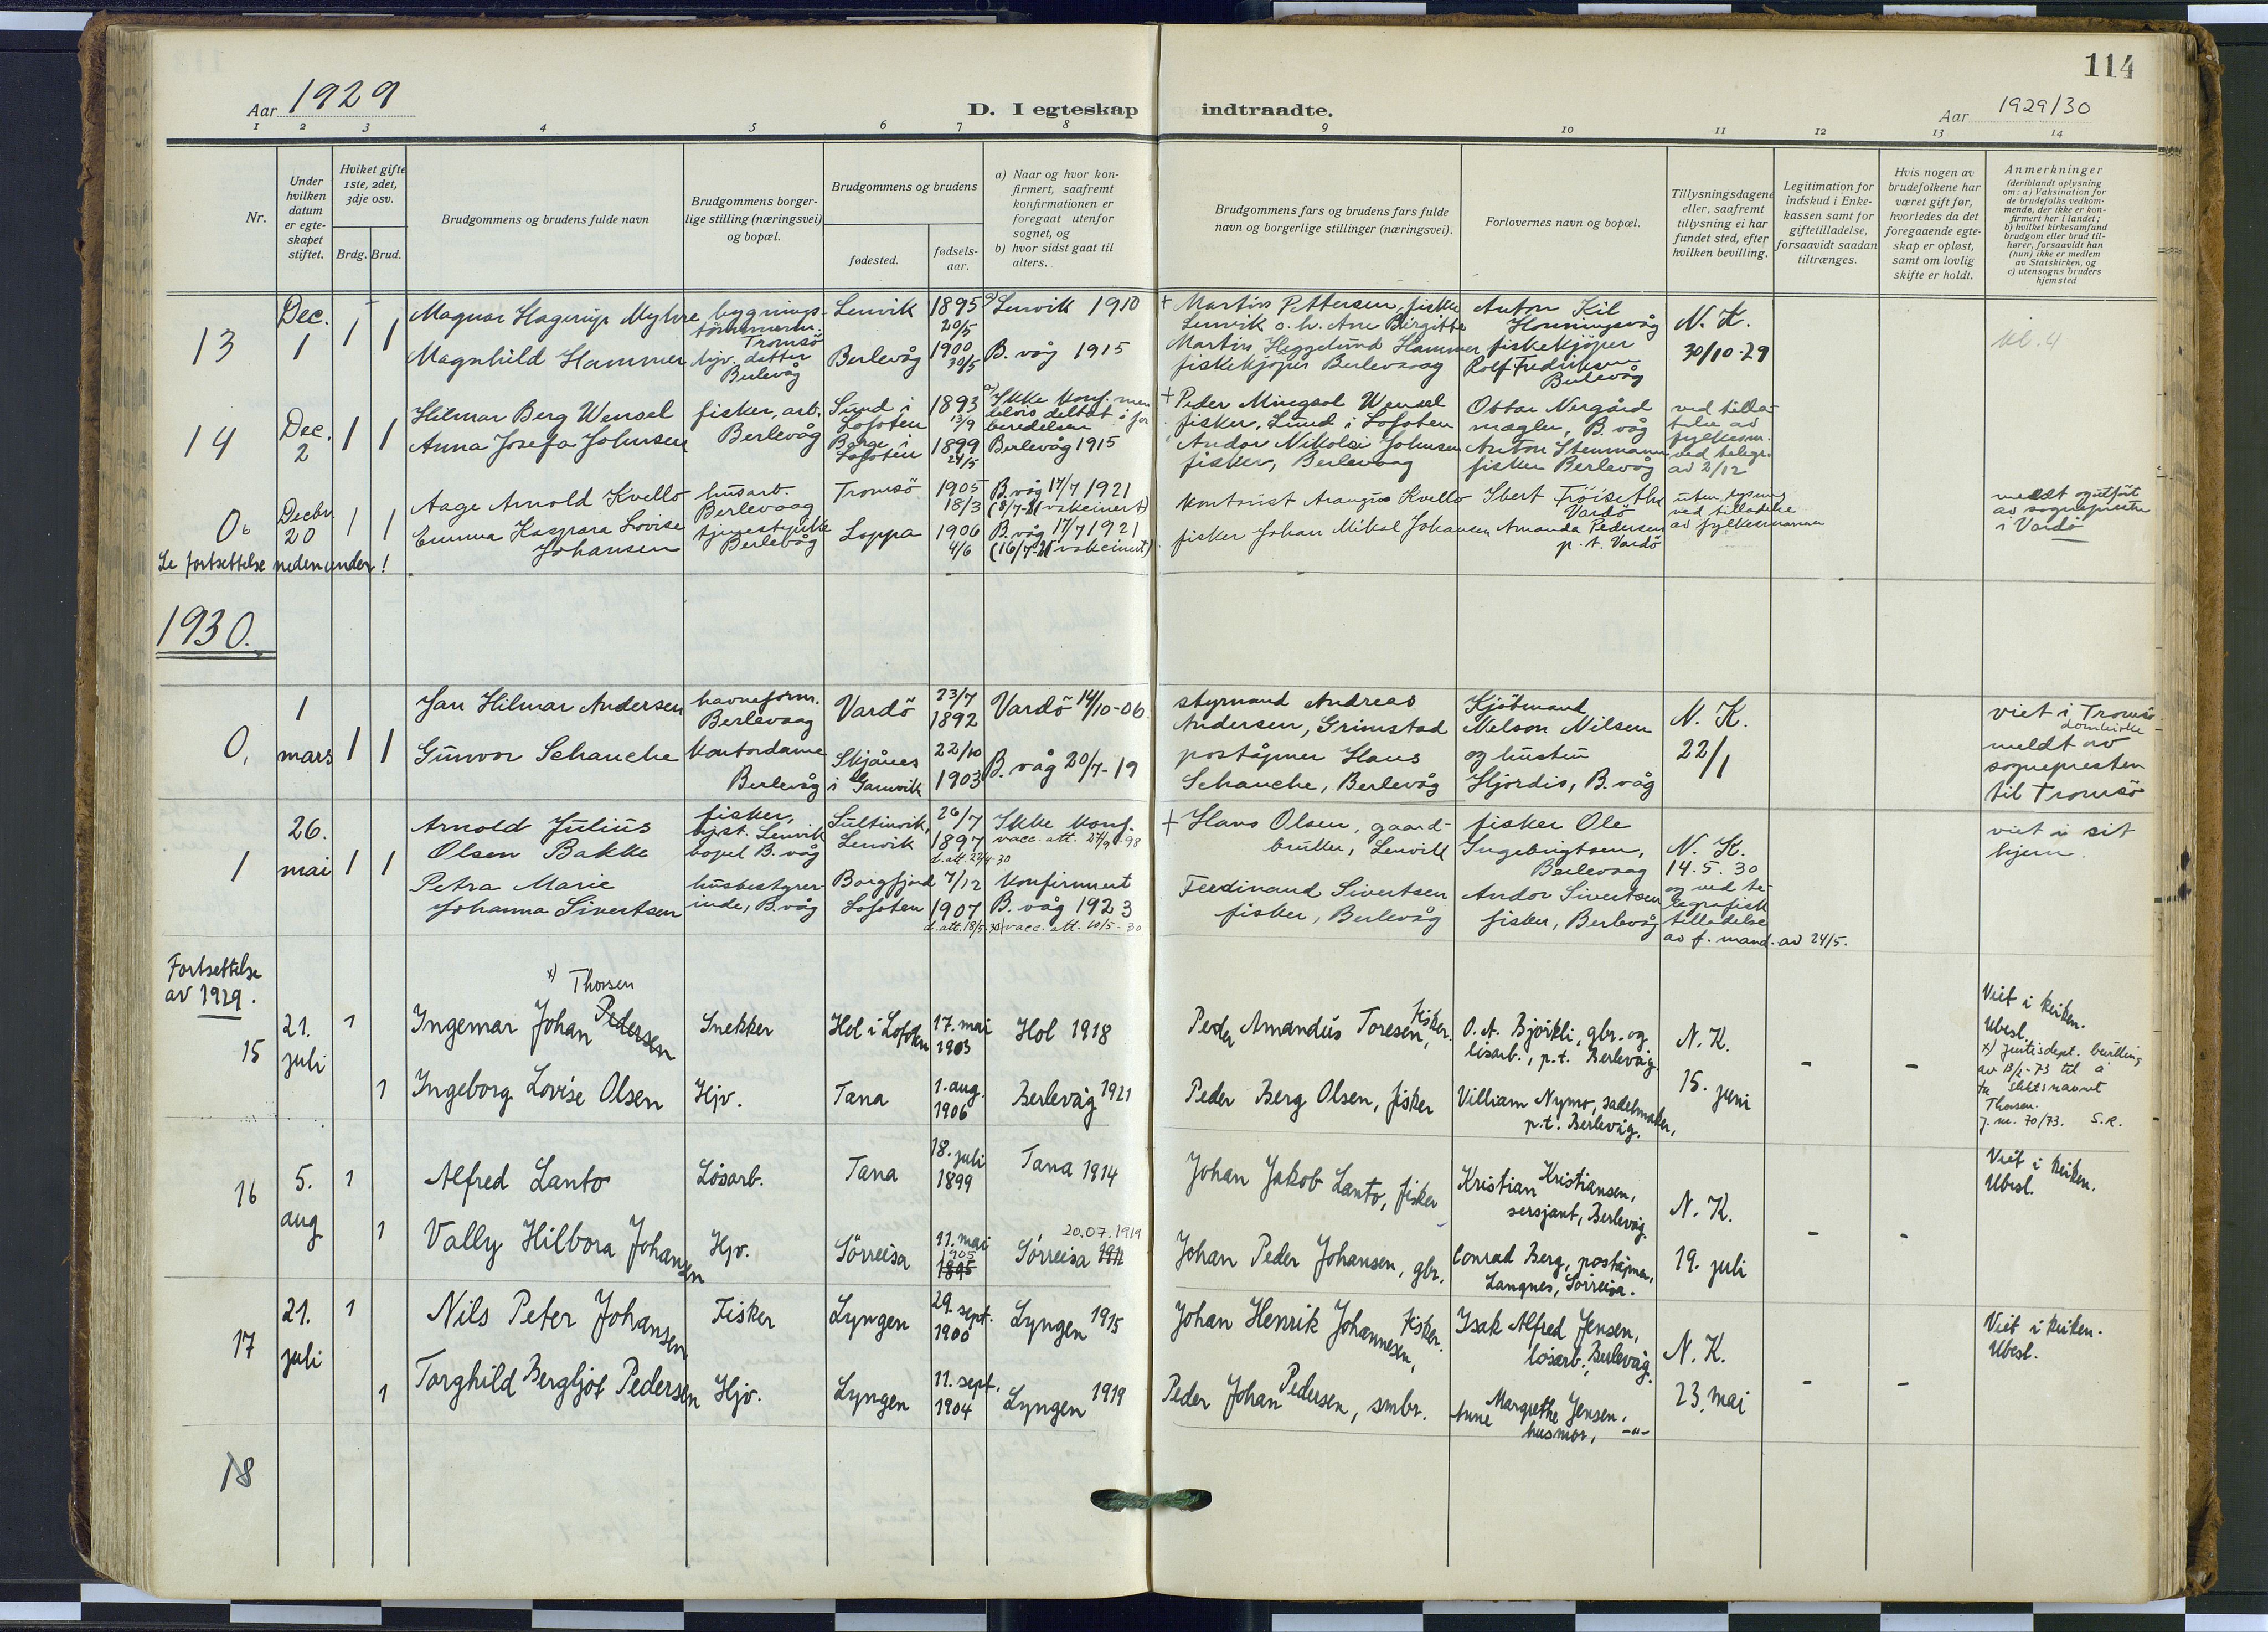 114
Aar 1929
D. I egteskap indtraadte.
Aar 1929/30
1 2 3 4 5 6 7 8 9 10 11 12 13 14
Nr.
Under hvilken datum er egteskapet stiftet.
Hviket gifte 1ste, 2det, 3dje osv.
Brdg. Brud.
Brudgommens og brudens fulde navn
Brudgommens borgerlige stilling (næringsvei) og bopæl.
Brudgommens og brudens
fødested.
fødselsaar.
a) Naar og hvor konfirmert, saafremt konfirmationen er foregaat utenfor sognet, og
b) hvor sidst gaat til alters.
Brudgommens fars og brudens fars fulde navn og borgerlige stillinger (næringsvei).
Forlovernes navn og bopæl.
Tillysningsdagene eller, saafremt tillysning ei har fundet sted, efter hvilken bevilling.
Legitimation for indskud i Enkekassen samt for giftetilladelse, forsaavidt saadan tiltrænges.
Hvis nogen av brudefolkene har været gift før, hvorledes da det foregaaende egteskap er opløst, samt om lovlig skifte er holdt.
Anmerkninger
(deriblandt oplysning om: a) Vaksination for de brudefolks vedkommende, der ikke er konfirmert her i landet; b) hvilket kirkesamfund brudgom eller brud tilhører, forsaavidt han (hun) ikke er medlem av Statskirken, og c) utensogns bruders hjemsted
13
Dec. 1
1 1
Magnar Hagerup Myhre
bygnings-
tömmerm. Tromsö
Lenvik
1895 20/5
a) Lenvik 1910
+ Martin Pettersen, fisker
Lenvik o. h. Ane Birgitte
Anton Kil
Honningsvåg
N. K.
30/10-29
kl. 4
Magnhild Hammer
hjv. datter
Berlevåg
Berlevåg
1900 30/5
B. våg 1915
Martin Heggelund Hammer
fiskekjöper Berlevaag
fiskekjöper
Rolf Fredriksen
Berlevåg
14
Dec. 2
1 1
Hilmar Berg Wensel
fisker, arb.
Berlevåg
Sund i Lofoten
1893 13/9
a) Ikke konf. men
delvis deltat i for
beredelsen
+ Peder Mingsol Wensel
fisker, Sund i Lofoten
Ottar Nergård
mægler, B. våg
ved tilla-
telse av
fylkesm.
ved telegr.
av 2/12
Anna Josefa Johnsen
Borge i Lofoten
1899 24/5
Berlevåg 1915
Andor Nikolai Johnsen
fisker, Berlevaag
Anton Stenmann
fisker Berlevåg
0.
Decbr. 20
1 1
Aage Arnold Kvello
husarb.
Berlevaag
Tromsö
1905 18/3
B. våg 17/7 1921
(8/7-21 vakcinert)
kontorist Arangus Kvello
Ibert Tröiseth
Vardö
uten lysning
ved tilladelse
av fylkesmannen
meldt og utfört
av sognepresten
i Vardö
Emma Kaspara Lovise
Johansen
tjenestpike
Berlevåg
Loppa
1906 4/6
B. våg 17/7 1921
(16/7-21 vakcinert)
fisker Johan Mikal Johansen
Amanda Pedersen
p. t. Vardö
Se fortsettelse nedenunder!
1930.
0,
1 mars
1 1
Jan Hilmar Andersen
havneform.
Berlevaag
Vardö
23/7 1892
Vardö 14/10-06
styrmand Andreas
Andersen, Grimstad
Kjöbmand
Nelson Nilsen
N. K.
22/1
viet i Tromsö
domkirke
meldt av
sognepresten
til Tromsö
Gunvor Schanche
kontordame
Berlevåg
Skjånes
i Gamvik
22/10 1903
B. våg 20/7-19
poståpner Hans
Schanche, Berlevåg
og hustru
Hjördis, B. våg
1
26. mai
1 1
Arnold Julius
Olsen Bakke
fisker,
hjst. Lenvik
bopel B. våg
Sultinvik,
Lenvik
26/7 1897
d. att. 22/4-30
Ikke konf.
vacc. att. 27/9-98
+ Hans Olsen, gaard-
bruker, Lenvik
fisker Ole
Ingebrigtsen,
Berlevaag
N. K.
14.5.30
og ved te-
legrafisk
tilladelse
av f. mand. av 24/5.
viet i sit
hjem.
Petra Marie
Johanna Sivertsen
husbestyrer-
inde, B. våg
Borgfjord
Lofoten
7/12 1907
d. att. 18/5-30
Konfirmert
B. våg 1923
vacc. att. 20/5-30
Ferdinand Sivertsen
fisker, Berlevåg
Andor Sivertsen
fisker, Berlevåg
Fortsettelse
av 1929.
15
21. juli
1
x) Thorsen
Ingemar Johan Pedersen
Snekker
Hol i Lofoten
17. mai 1903
Hol 1918
Peder Amandus Toresen, fisker.
O. A. Björkli, gbr. og
løsarb., p.t. Berlevåg
N. K.
15. juni
-
-
Viet i kirken.
Ubesl.
x) Justisdept. bevilling
av 13/2-73 til å
ta slektsnavnet
Thorsen.
J. nr. 70/73. S.R.
1
Ingeborg Lovise Olsen
Hjv.
Tana
1. aug. 1906
Berlevåg 1921
Peder Berg Olsen, fisker
Villiam Nymo, sadelmaker,
p.t. Berlevåg.
16
5. aug
1
Alfred Lanto
Løsarb.
Tana
18. juli 1899
Tana 1914
Johan Jakob Lanto, fisker
Kristian Kristiansen,
sersjant, Berlevåg.
N. K.
19. juli
-
-
Viet i kirken.
Ubesl.
1
Vally Hilbora Johansen
Hjv.
Sörreisa
11. mai 1905
1895
20.07.1919
Sörreisa 1911
Johan Peder Johansen, gbr.
Conrad Berg, poståpner,
Langnes, Sörreisa.
17
21. juli
1
Nils Peter Johansen
Fisker
Lyngen
29. sept. 1900
Lyngen 1915
Johan Henrik Johannesen, fisker.
Isak Alfred Jensen,
løsarb., Berlevåg.
N. K.
23. mai
-
-
Viet i kirken.
Ubesl.
1
Torghild Bergljot Pedersen
Hjv.
Lyngen
11. sept. 1904
Lyngen 1919
Peder Johan Pedersen, smbr.
Anne Margrethe Jensen,
husmor, -"-
18